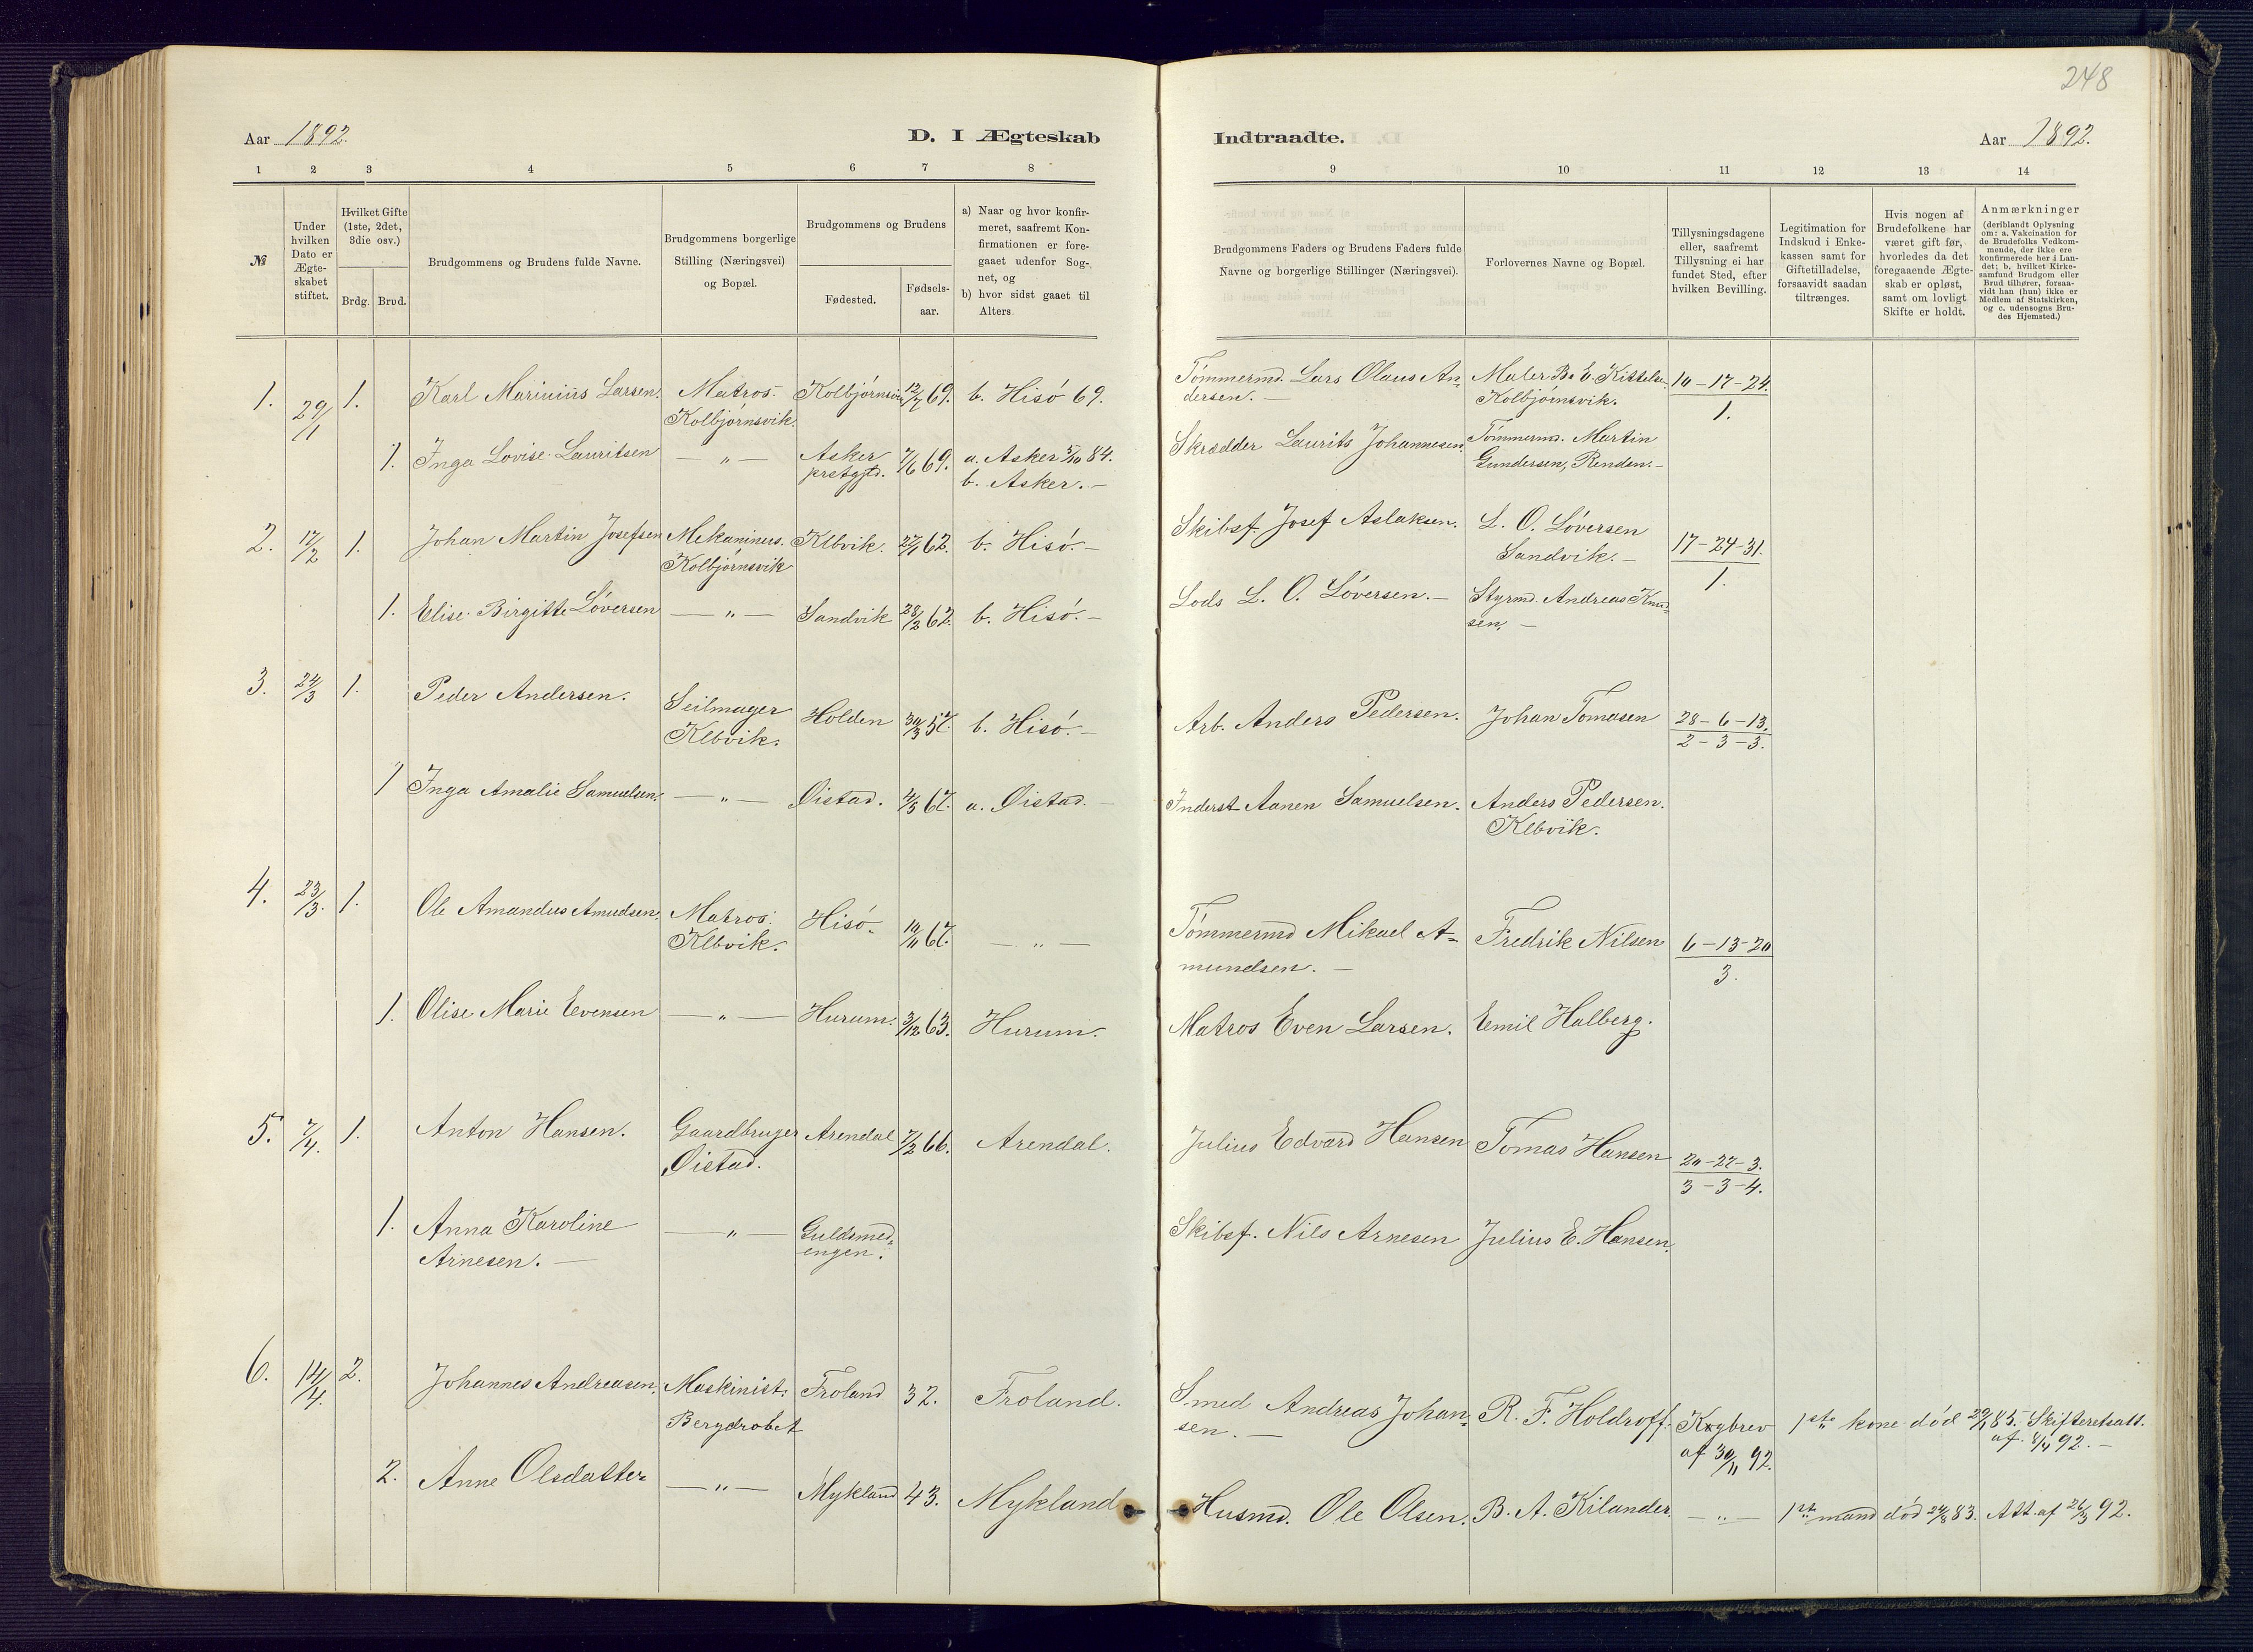 248
Aar 1892.
D. I Ægteskab
Indtraadte.
Aar 1892.
1 2 3 4 5 6 7 8
9 10 11 12 13 14
№
Under
hvilken
Dato er
Ægte-
skabet
stiftet.
Hvilket Gifte
(1ste, 2det,
3die osv.)
Brdg. Brud.
Brudgommens og Brudens fulde Navne.
Brudgommens borgerlige
Stilling (Næringsvei)
og Bopæl.
Brudgommens og Brudens
Fødested.
Fødsels-
aar.
a) Naar og hvor konfir-
meret, saafremt Kon-
firmationen er fore-
gaaet udenfor Sog-
net, og
b) hvor sidst gaaet til
Alters.
Brudgommens Faders og Brudens Faders fulde
Navne og borgerlige Stillinger (Næringsvei).
Forlovernes Navne og Bopæl.
Tillysningsdagene
eller, saafremt
Tillysning ei har
fundet Sted, efter
hvilken Bevilling.
Legitimation for
Indskud i Enke-
kassen samt for
Giftetilladelse,
forsaavidt saadan
tiltrænges.
Hvis nogen af
Brudefolkene har
været gift før,
hvorledes da det
foregaaende Ægte-
skab er opløst,
samt om lovligt
Skifte er holdt.
Anmærkninger
(deriblandt Oplysning
om: a. Vakcination for
de Brudefolks Vedkom-
mende, der ikke ere
konfirmerede her i Lan-
det; b, hvilket Kirke-
samfund Brudgom eller
Brud tilhører, forsaa-
vidt han (hun) ikke er
Medlem af Statskirken,
og c. udensogns Bru-
des Hjemsted.)
1. 29/1 1. Karl Marinius Larsen. Matros. Kolbjørnsvik 12/7 69. b. Hisø 69. Tømmermd. Lars Olaus An- Maler B. E. Kittelse 10-17-24.
Kolbjørnsvik. dersen. — Kolbjørnsvik. 1.
1. Inga Lovise Lauritsen — " — Asker 7/6 69. a. Asker 5/10 84. Skrædder Laurits Johannesen. Tømmermd. Martin
prstgjld. b. Asker. — Gundersen, Renden. —
2. 17/2 1. Johan Martin Josefsen Mekaninus. Klbvik. 27/1 62. b. Hisø. — Skibsf. Josef Aslaksen. L. O. Løversen 17-24-31.
Kolbjørnsvik Sandvik. — 1.
1. Elise Birgitte Løversen — " — Sandvik 28/2 62. b. Hisø. — Lods L. O. Løversen. — Styrmd. Andreas Knud-
sen, —
3. 24/3 1. Peder Andersen. Seilmager Holden 30/3 57. b. Hisø. — Arb. Anders Pedersen. Johan Tomasen 28-6-13.
Klbvik. 2-3-3.
1 Inga Amalie Samuelsen. — " — Øistad. 4/5 67. a. Øistad. — Inderst Aanen Samuelsen. Anders Pedersen.
Klbvik.
4. 23/3. 1. Ole Amandus Amudsen. Matros. Hisø. 10/11 67. — " — Tømmermd Mikael A- Fredrik Nilsen 6-13-20
Klbvik. mundsen. — 3.
1. Olise Marie Evensen — " — Hurum. 3/12 63. Hurum. Matros Even Larsen. Emil Halberg.
5. 7/4. 1. Anton Hansen. Gaardbruger Arendal 7/2 66. Arendal. Julius Edvard Hansen Tomas Hansen 20-27-3.
Øistad. 3-3-4.
1. Anna Karoline — " — Guldsmed- Skibsf. Nils Arnesen Julius E. Hansen.
Arnesen. — engen.
6. 14/4. 2. Johannes Andreasen. Maskinist. Froland 32. Froland. Smed Andreas Johan- R. F. Holdroff. Kgbrev 1ste kone død 29/1 85. Skifteretsatt.
Bergdrobet sen. — af 30/11 92. af 8/4 92. —
2. Anne Olsdatter — " — Mykland 43. Mykland Husmd. Ole Olsen. B. A. Kilander. — " — 1st mand død 24/8 83. Att. af 26/3 92.